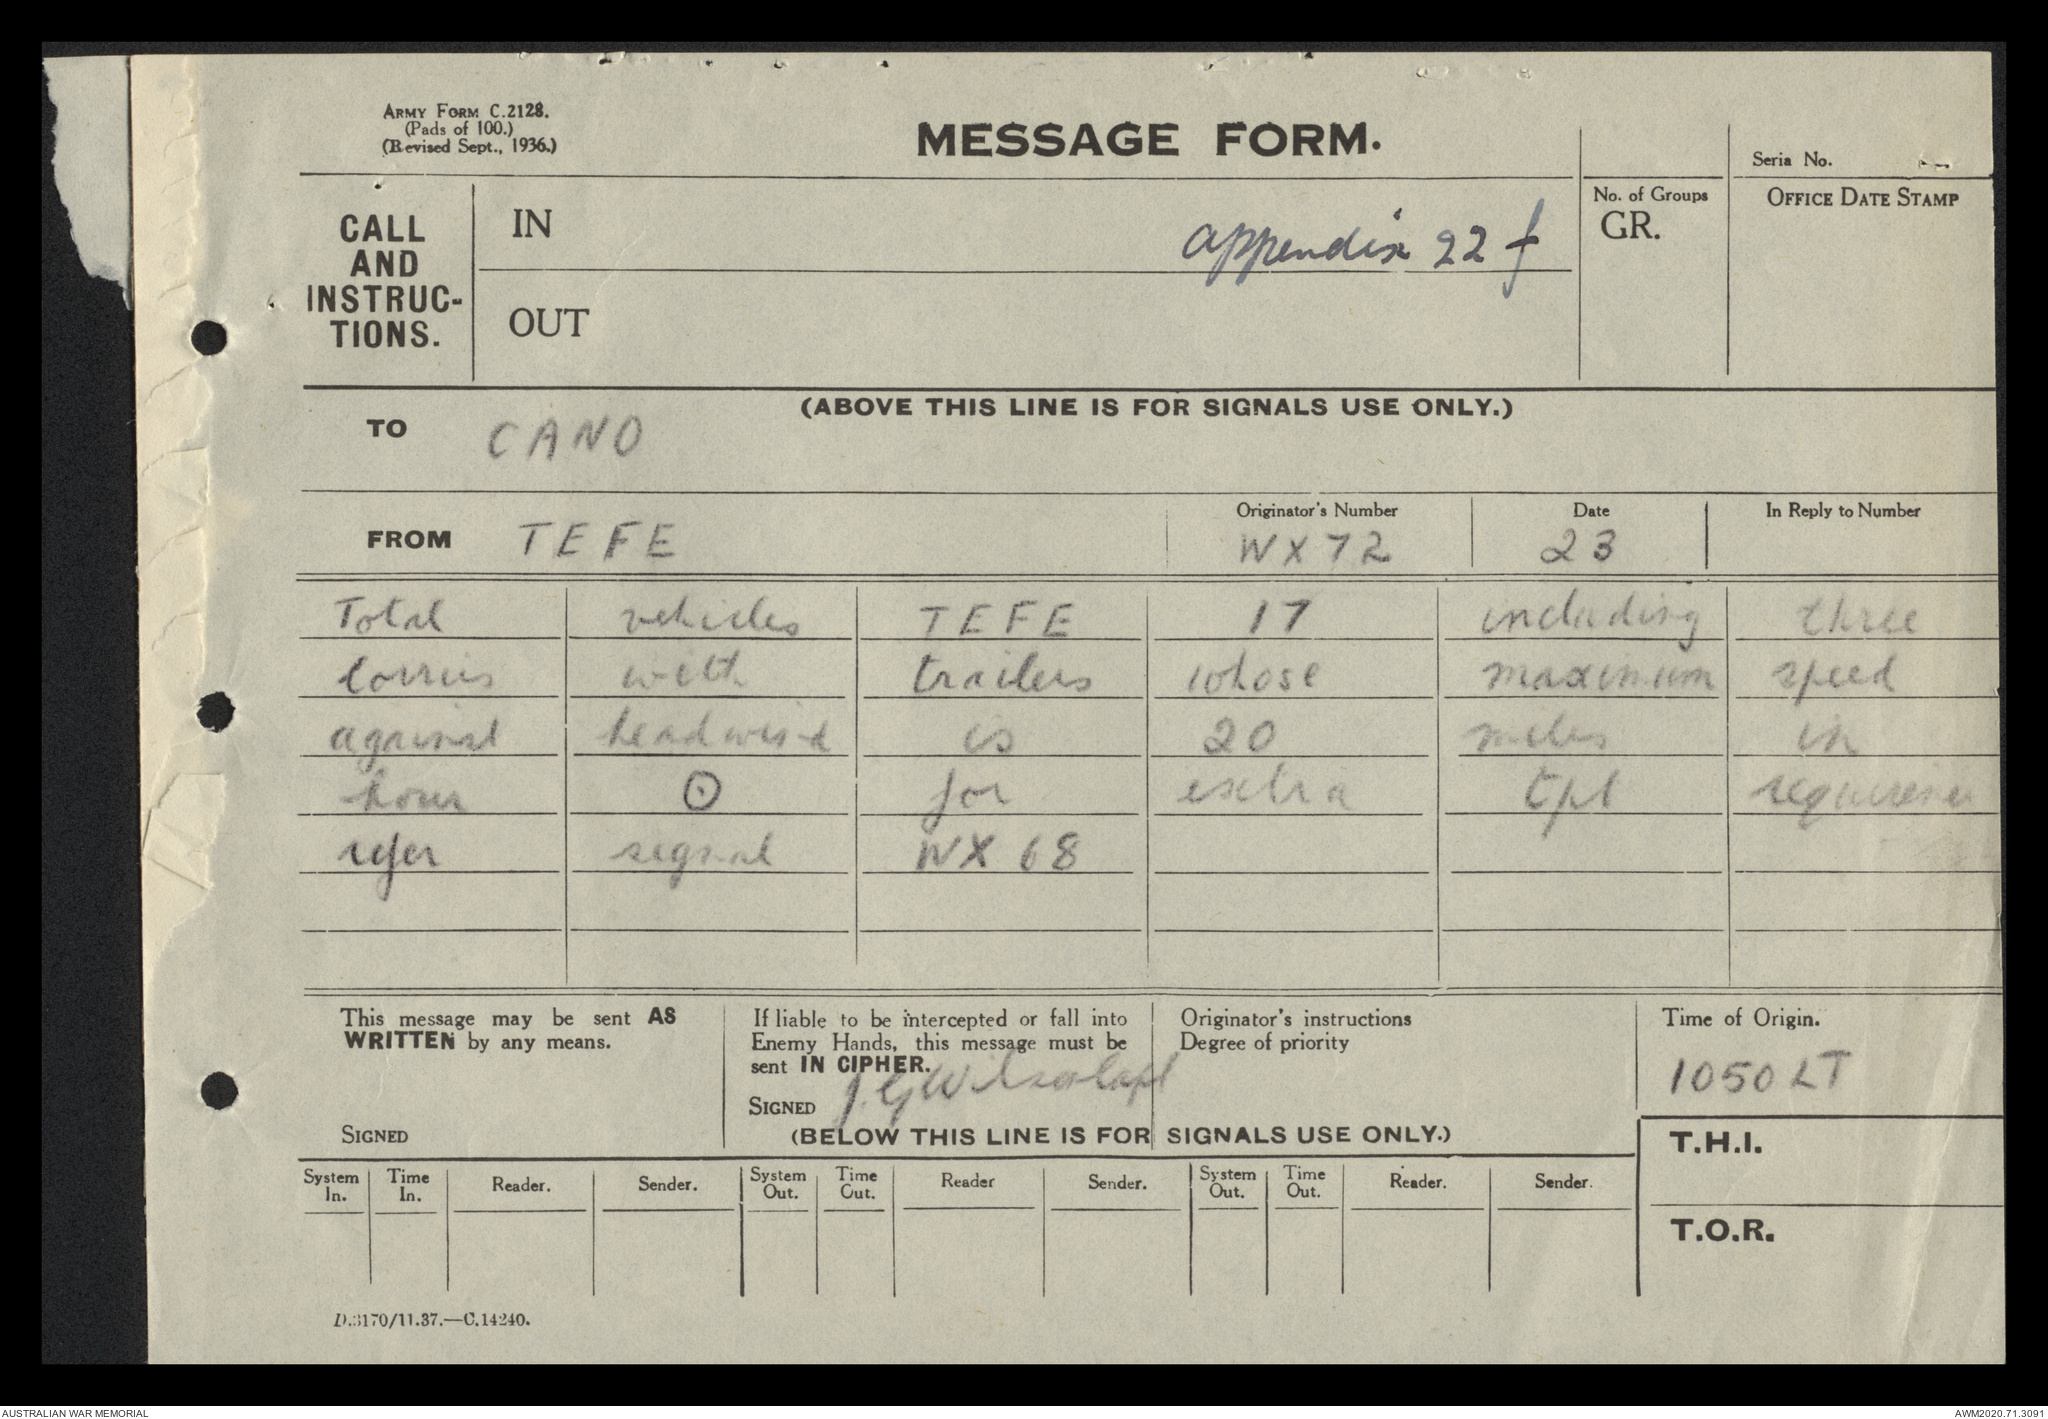 ARMY FORM C.2128.
(Pads of 100.)
(Revised Sept., 1936.)
MESSAGE FORM.
Seria No.
CALL AND INSTRUC-TIONS.
IN
appendix 22 f
No. of Groups
GR.
OFFICE DATE STAMP
OUT
(ABOVE THIS LINE IS FOR SIGNALS USE ONLY.)
TO CANO
FROM TEFE
Originator's Number WX72
Date 23
In Reply to Number
Total vehicles TEFE 17 including three
lorries with trailers whose maximum speed
against headwind is 20 miles in
hour ⊙ for extra tpt
refer signal WX 68
This message may be sent AS
WRITTEN by any means.
SIGNED
If liable to be intercepted or fall into
Enemy Hands, this message must be
sent IN CIPHER.
SIGNED J.G Wilson Capt
Originator's instructions
Degree of priority
Time of Origin.
1050 LT
(BELOW THIS LINE IS FOR SIGNALS USE ONLY.)
T.H.I.
System In. Time In. Reader. Sender. System Out. Time Out. Reader Sender. System Out. Time Out. Reader. Sender.
T.O.R.
D.3170/11.37.—C.14240.
AUSTRALIAN WAR MEMORIAL
AWM2020.71.3091